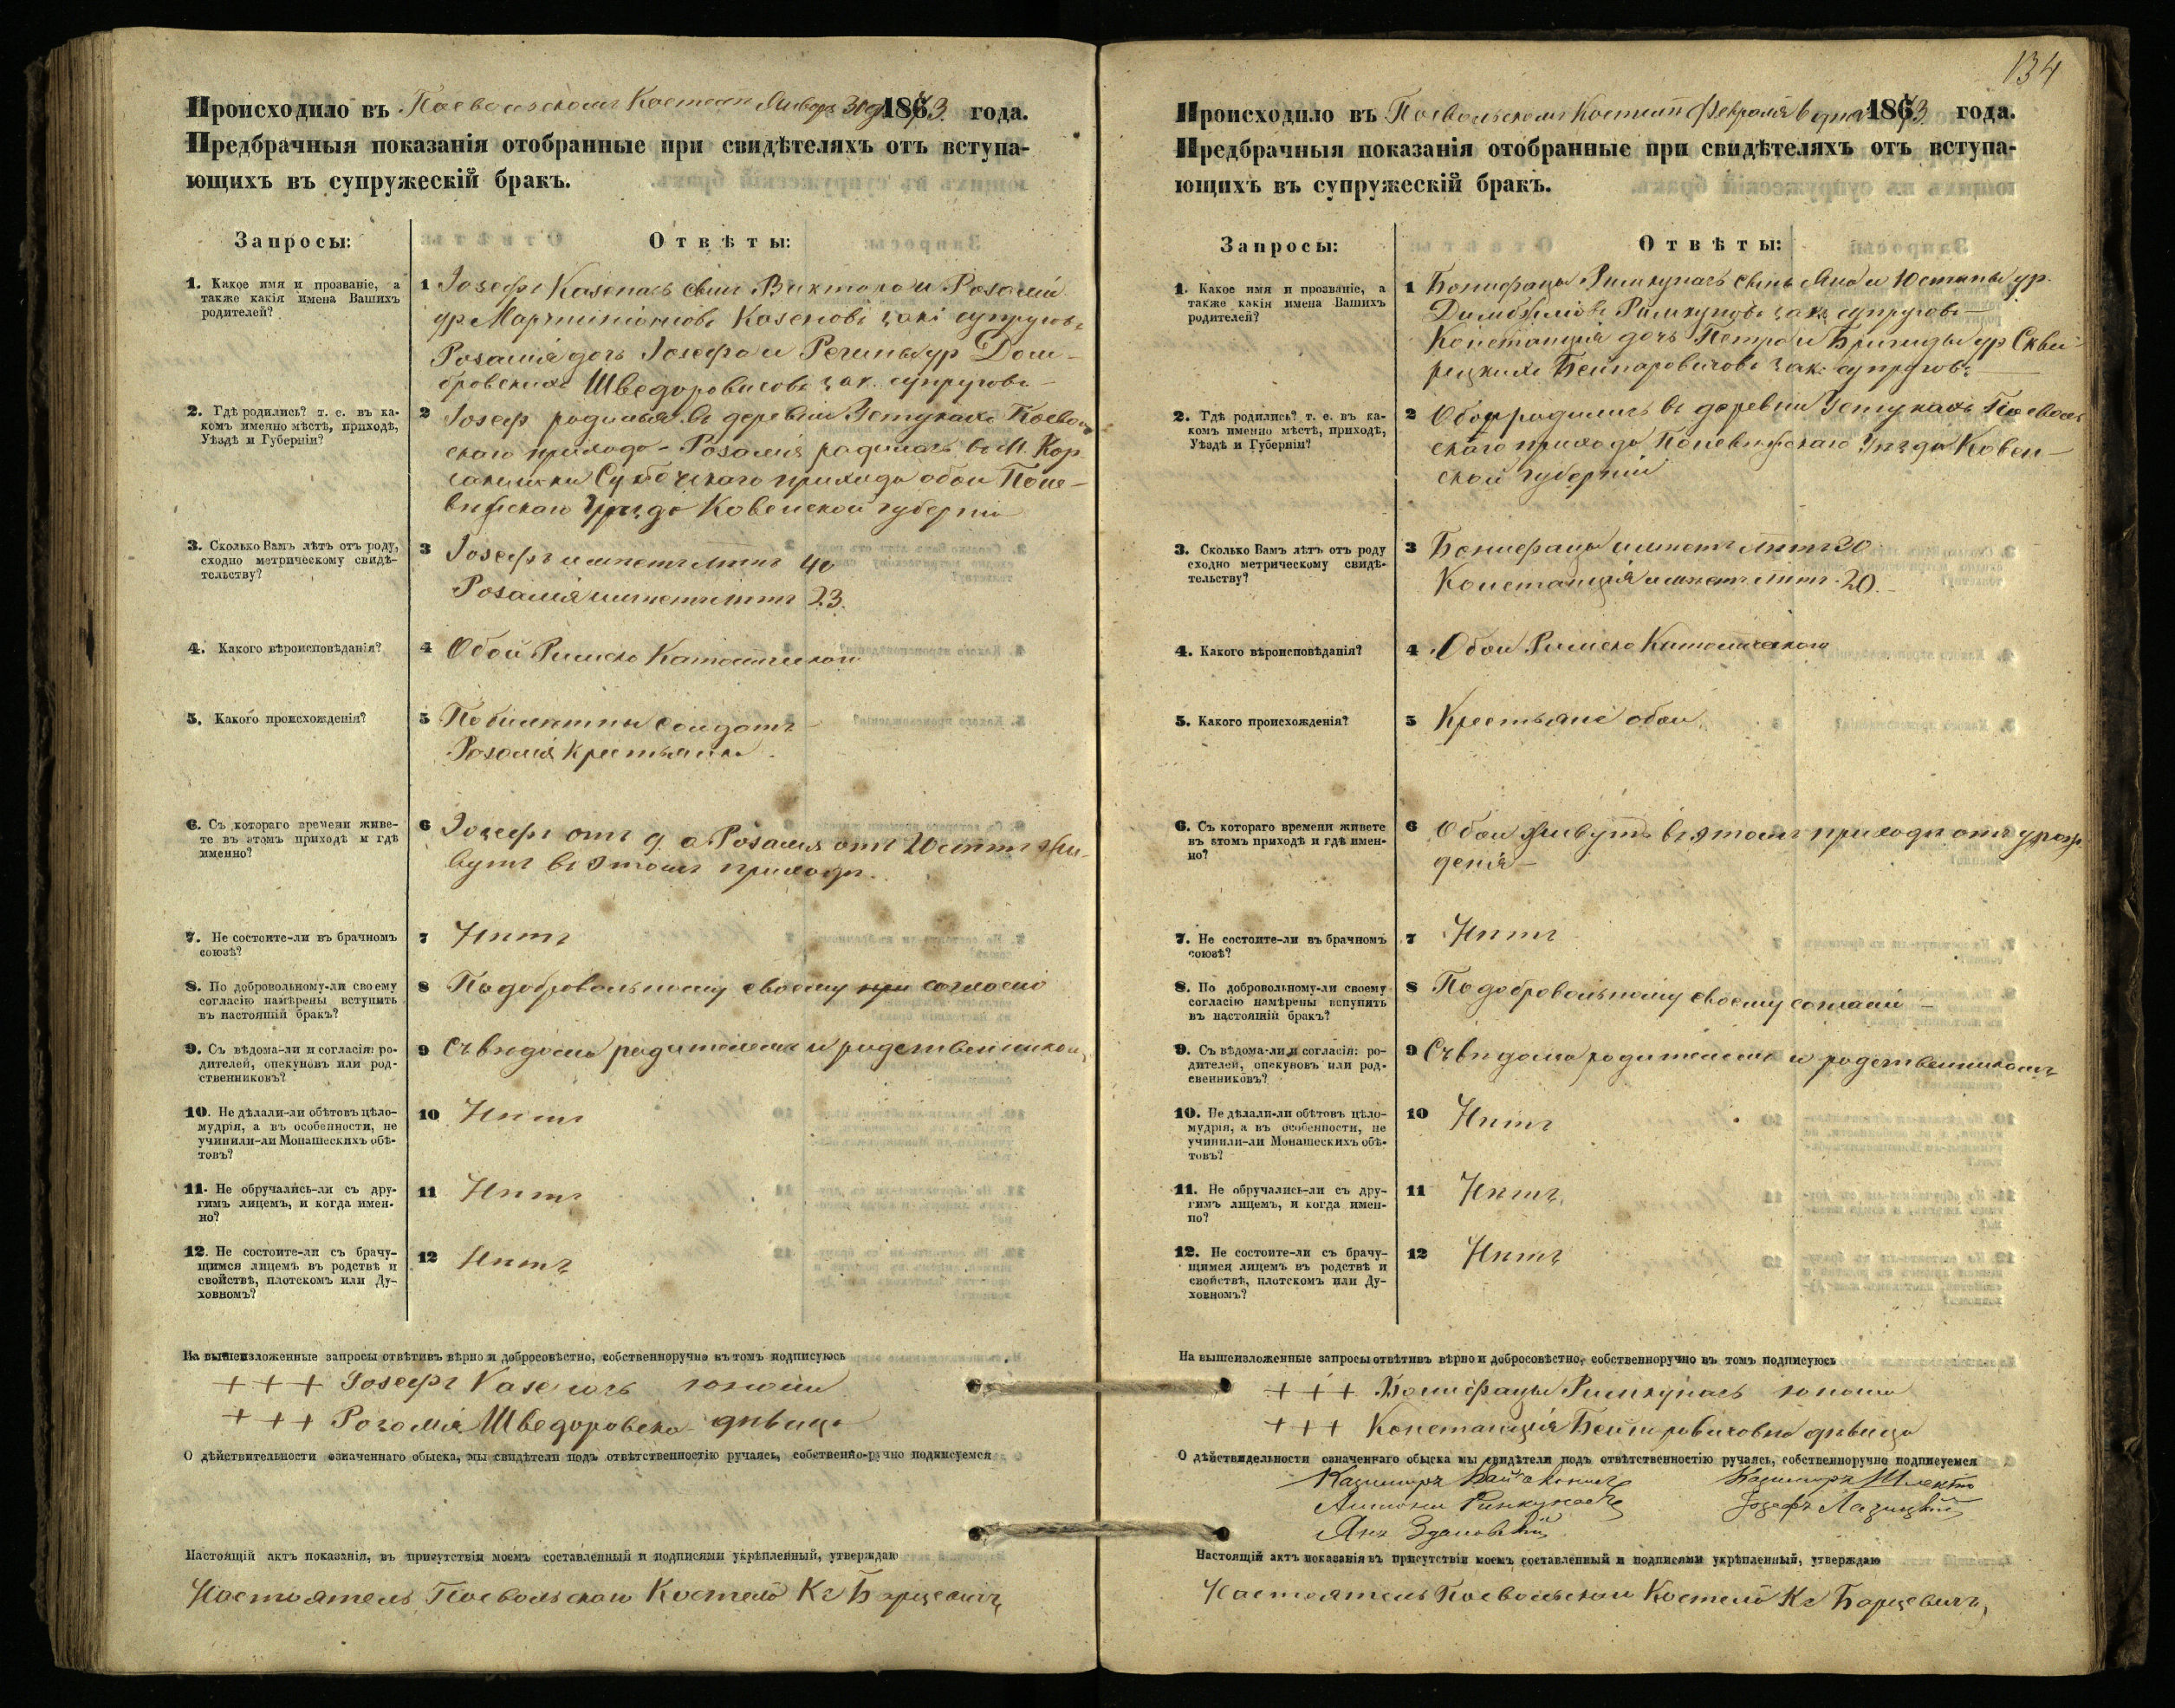 Происходило въ Поевольскомъ Костелѣ Января 30 д 1873 года.
Предбрачныя показанія отобранные при свидѣтеляхъ отъ вступа-
ющихъ въ супружескій бракъ.
Запросы:
Отвѣты:
1. Какое имя и прозваніе, а
также какія имена Вашихъ
родителей?
1 Іозефъ Казенасъ сынъ Виктора и Розаліи
ур Марцинкіовъ Казеновъ зак супруговъ
Розалія дочь Іозефа и Регины ур Дом-
бровскихъ Шведоровичовъ зак. супруговъ
2. Гдѣ родились? т. е. въ ка-
комъ именно мѣстѣ, приходѣ,
Уѣздѣ и Губерніи?
2 Іозеф родился въ деревни Устукахъ Поеволь
скаго прихода - Розалія родилась въ М. Кор
сакишки Суботскаго прихода обои Поне-
вѣжскаго Уѣзда Ковенской губерніи
3. Сколько Вамъ лѣтъ отъ роду,
сходно метрическому свидѣ-
тельству?
3 Іозефъ имѣетъ лѣтъ 40
Розалія имѣетъ лѣтъ 23.
4. Какого вѣроисповѣданія?
4 Обои Римско Католическаго
5. Какого происхожденія?
5 Побилетны солдатъ
Розалія крестьянка.
6. Съ котораго времени живе-
те въ этомъ приходѣ и гдѣ
именно?
6 Іозефъ отъ д. а Розалія отъ 20 лѣтъ жи-
вутъ въ этомъ приходѣ.
7. Не состоите-ли въ брачномъ
союзѣ?
7 Нѣтъ
8. По добровольному-ли своему
согласію намѣрены вступить
въ настоящій бракъ?
8 По добровольному своему при согласію
9. Съ вѣдома-ли и согласія: ро-
дителей, опекуновъ или род-
ственниковъ?
9 Съ вѣдома родителей и родственников
10. Не дѣлали-ли обѣтовъ цѣло-
мудрія, а въ особенности, не
учинили-ли Монашескихъ обѣ-
товъ?
10 Нѣтъ
11. Не обручались-ли съ дру-
гимъ лицемъ, и когда имен-
но?
11 Нѣтъ
12. Не состоите-ли съ брачу-
щимся лицемъ въ родствѣ и
свойствѣ, плотскомъ или Ду-
ховномъ?
12 Нѣтъ
На вышеизложенные запросы отвѣтивъ вѣрно и добросовѣстно, собственноручно въ томъ подписуюсь
+++ Іозефъ Казенасъ юноша
+++ Розалія Шведоровска дѣвица
О дѣйствительности означеннаго обыска, мы свидѣтели подъ отвѣтственностію ручаясь, собственно-ручно подписуемся
Настоящій актъ показанія, въ присутствіи моемъ составленный и подписями укрѣпленный, утверждаю
Настоятель Поевольскаго Костела Кс Барцевичъ
134
Происходило въ Поевольскомъ Костелѣ Февраля 6 дня 1873 года.
Предбрачныя показанія отобранные при свидѣтеляхъ отъ вступа-
ющихъ въ супружескій бракъ.
Запросы:
Отвѣты:
1. Какое имя и прозваніе, а
также какія имена Вашихъ
родителей?
1 Бонифацы Римкунасъ сынъ Яна и Юстины ур.
Римкуновъ зак супруговъ
Констанція дочь Петра и Бригиды ур Скви-
рецкихъ Бейнаровичовъ зак: супруговъ
2. Гдѣ родились? т. е. въ ка-
комъ именно мѣстѣ, приходѣ,
Уѣздѣ и Губерніи?
2 Обои родились въ деревни Устукахъ Поеволь
скаго прихода Поневѣжскаго Уѣзда Ковен-
ской губерніи
3. Сколько Вамъ лѣтъ отъ роду
сходно метрическому свидѣ-
тельству?
3 Бонифацы имѣетъ лѣтъ 20
Констанція имѣетъ лѣтъ 20.
4. Какого вѣроисповѣданія?
4 Обои Римско Католическаго
5. Какого происхожденія?
5 Крестьяне обои
6. Съ котораго времени живете
въ этомъ приходѣ и гдѣ имен-
но?
6 Обои живутъ въ этомъ приходѣ отъ урож
денія
7. Не состоите-ли въ брачномъ
союзѣ?
7 Нѣтъ
8. По добровольному-ли своему
согласію намѣрены вспупить
въ настоящій бракъ?
8 По добровольному своему согласіи
9. Съ вѣдома-ли и согласія: ро-
дителей, опекуновъ или род-
свенниковъ?
9 Съ вѣдома родителей и родственниковъ
10. Не дѣлали-ли обѣтовъ цѣло-
мудрія, а въ особенности, не
учинили-ли Монашескихъ обѣ-
товъ?
10 Нѣтъ
11. Не обручались-ли съ дру-
гимъ лицемъ, и когда имен-
но?
11 Нѣтъ
12. Не состоите-ли съ брачу-
щимся лицемъ въ родствѣ и
свойствѣ, плотскомъ или Ду-
ховномъ?
12 Нѣтъ
На вышеизложенные запросы отвѣтивъ вѣрно и добросовѣстно, собственноручно въ томъ подписуюсь
+++ Бонифацы Римкунасъ юноша
+++ Констанція Бейнаровичовна дѣвица
О дѣйствидельности означеннаго обыска мы свидѣтели подъ отвѣтственностію ручаясь, собственноручно подписуемся
Казимиръ Казимиръ
Антони Римкунасъ Іозефъ Лазицкій
Янъ Здановскій
Настоящій актъ показанія въ присутствіи моемъ составленный и подписями укрѣпленный, утверждаю
Настоятель Поевольскаго Костела Кс Барцевичъ